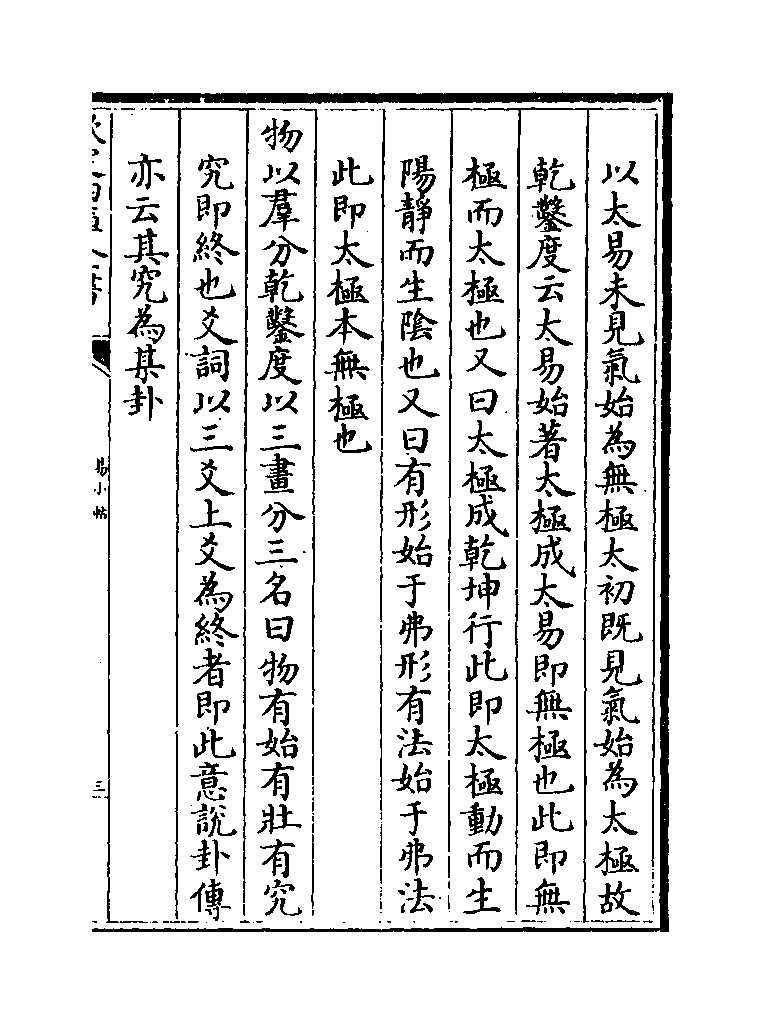 以太易未見氣始為無極太初既見氣始為太極故
乾鑿度云太易始著太極成太易即無極也此即無
極而太極也又曰太極成乾坤行此即太極動而生
陽靜而生陰也又曰有形始于弗形有法始于弗法
此即太極本無極也
物以羣分乾鑿度以三畫分三名曰物有始有壯有究
究即終也爻詞以三爻上爻為終者即此意說卦傳
亦云其究為某卦
易小帖
三